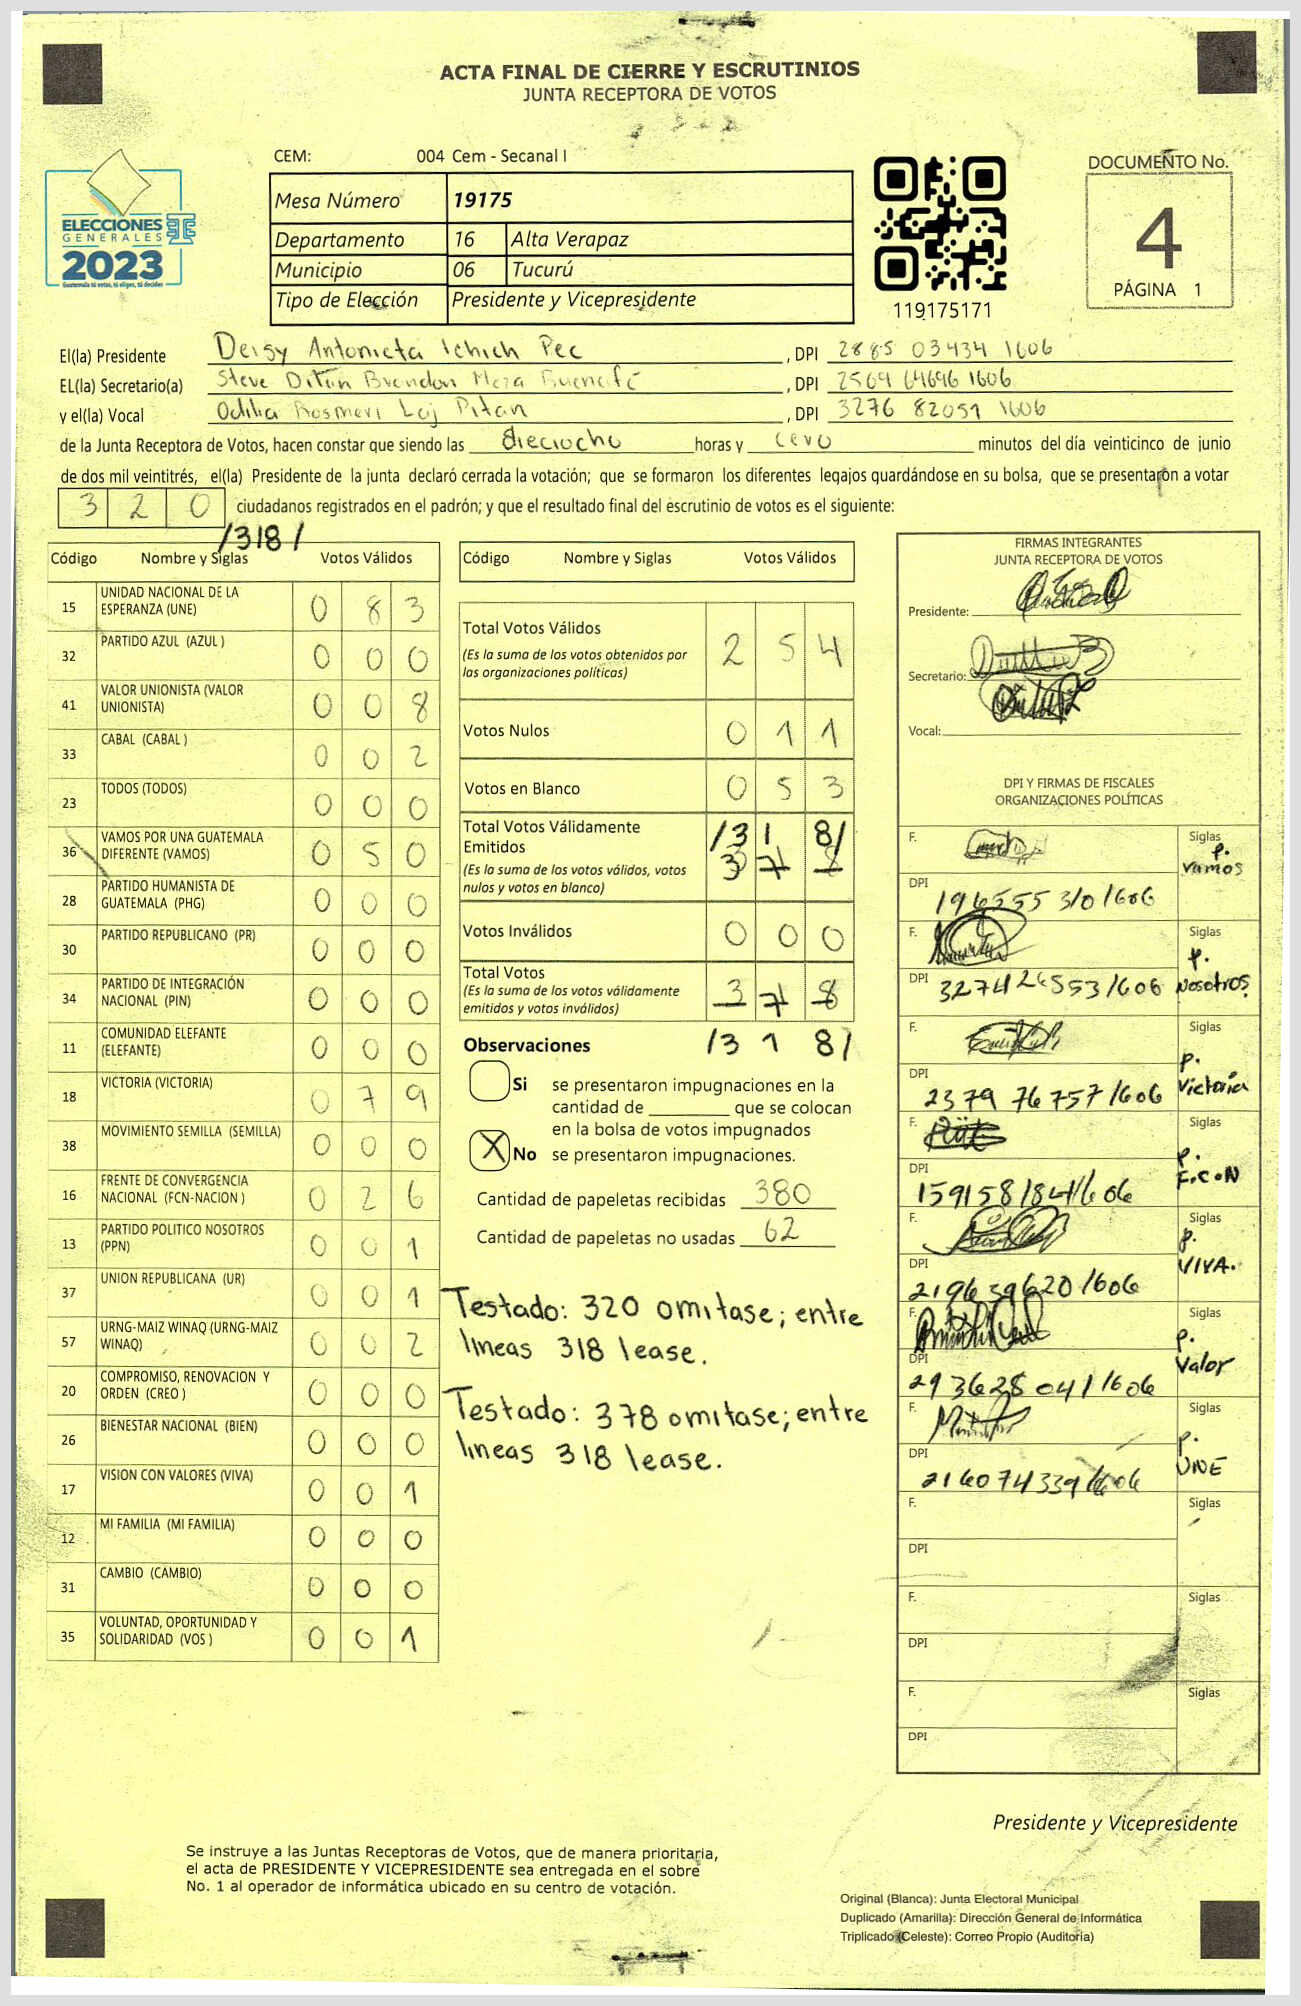 ACTA FINAL DE CIERRE Y ESCRUTINIOS
JUNTA RECEPTORA DE VOTOS
CEM: 004 Cem - Secanal I
DOCUMENTO No.
4
PÁGINA 1
ELECCIONES
GENERALES
2023
Guatemala tú votas, tú eliges, tú decides
Mesa Número 19175
Departamento 16 Alta Verapaz
Municipio 06 Tucurú
Tipo de Elección Presidente y Vicepresidente
119175171
El(la) Presidente Deisy Antonieta Ichich Pec, DPI 2885 03434 1606
EL(la) Secretario(a) Steve Brandon Meza, DPI 2569 64696 1606
y el(la) Vocal Odilia Rosmeri Laj Pitan, DPI 3276 82051 1606
de la Junta Receptora de Votos, hacen constar que siendo las dieciocho horas y cero minutos del día veinticinco de junio
de dos mil veintitrés, el(la) Presidente de la junta declaró cerrada la votación; que se formaron los diferentes legajos guardándose en su bolsa, que se presentaron a votar
3 2 0 ciudadanos registrados en el padrón; y que el resultado final del escrutinio de votos es el siguiente:
/318/
Código Nombre y Siglas Votos Válidos
15 UNIDAD NACIONAL DE LA ESPERANZA (UNE) 0 8 3
32 PARTIDO AZUL (AZUL ) 0 0 0
41 VALOR UNIONISTA (VALOR UNIONISTA) 0 0 8
33 CABAL (CABAL ) 0 0 2
23 TODOS (TODOS) 0 0 0
36 VAMOS POR UNA GUATEMALA DIFERENTE (VAMOS) 0 5 0
28 PARTIDO HUMANISTA DE GUATEMALA (PHG) 0 0 0
30 PARTIDO REPUBLICANO (PR) 0 0 0
34 PARTIDO DE INTEGRACIÓN NACIONAL (PIN) 0 0 0
11 COMUNIDAD ELEFANTE (ELEFANTE) 0 0 0
18 VICTORIA (VICTORIA) 0 7 9
38 MOVIMIENTO SEMILLA (SEMILLA) 0 0 0
16 FRENTE DE CONVERGENCIA NACIONAL (FCN-NACION ) 0 2 6
13 PARTIDO POLITICO NOSOTROS (PPN) 0 0 1
37 UNION REPUBLICANA (UR) 0 0 1
57 URNG-MAIZ WINAQ (URNG-MAIZ WINAQ) 0 0 2
20 COMPROMISO, RENOVACION Y ORDEN (CREO ) 0 0 0
26 BIENESTAR NACIONAL (BIEN) 0 0 0
17 VISION CON VALORES (VIVA) 0 0 1
12 MI FAMILIA (MI FAMILIA) 0 0 0
31 CAMBIO (CAMBIO) 0 0 0
35 VOLUNTAD, OPORTUNIDAD Y SOLIDARIDAD (VOS ) 0 0 1
Código Nombre y Siglas Votos Válidos
Total Votos Válidos 2 5 4
(Es la suma de los votos obtenidos por
las organizaciones políticas)
Votos Nulos 0 1 1
Votos en Blanco 0 5 3
Total Votos Válidamente /3 1 8/
Emitidos 3 7 8
(Es la suma de los votos válidos, votos
nulos y votos en blanco)
Votos Inválidos 0 0 0
Total Votos 3 7 8
(Es la suma de los votos válidamente
emitidos y votos inválidos)
Observaciones /3 1 8/
Si se presentaron impugnaciones en la
cantidad de ________ que se colocan
en la bolsa de votos impugnados
X No se presentaron impugnaciones.
Cantidad de papeletas recibidas 380
Cantidad de papeletas no usadas 62
Testado: 320 omitase; entre
lineas 318 lease.
Testado: 378 omitase; entre
lineas 318 lease.
FIRMAS INTEGRANTES
JUNTA RECEPTORA DE VOTOS
Presidente:
Secretario:
Vocal:
DPI Y FIRMAS DE FISCALES
ORGANIZACIONES POLÍTICAS
F. Siglas p. vamos
DPI 196555 310 1606
F. Siglas p. Nosotros
DPI 3274 26553 1606
F. Siglas p. Victoria
DPI 2379 76757 1606
F. Siglas p. F.C.N
DPI 159158184 1606
F. Siglas p. VIVA.
DPI 219639620 1606
F. Siglas p. Valor
DPI 293628041 1606
F. Siglas p. UNE
DPI 216074339 1606
F. Siglas
DPI
F. Siglas
DPI
F. Siglas
DPI
Presidente y Vicepresidente
Se instruye a las Juntas Receptoras de Votos, que de manera prioritaria,
el acta de PRESIDENTE Y VICEPRESIDENTE sea entregada en el sobre
No. 1 al operador de informática ubicado en su centro de votación.
Original (Blanca): Junta Electoral Municipal
Duplicado (Amarilla): Dirección General de Informática
Triplicado (Celeste): Correo Propio (Auditoria)